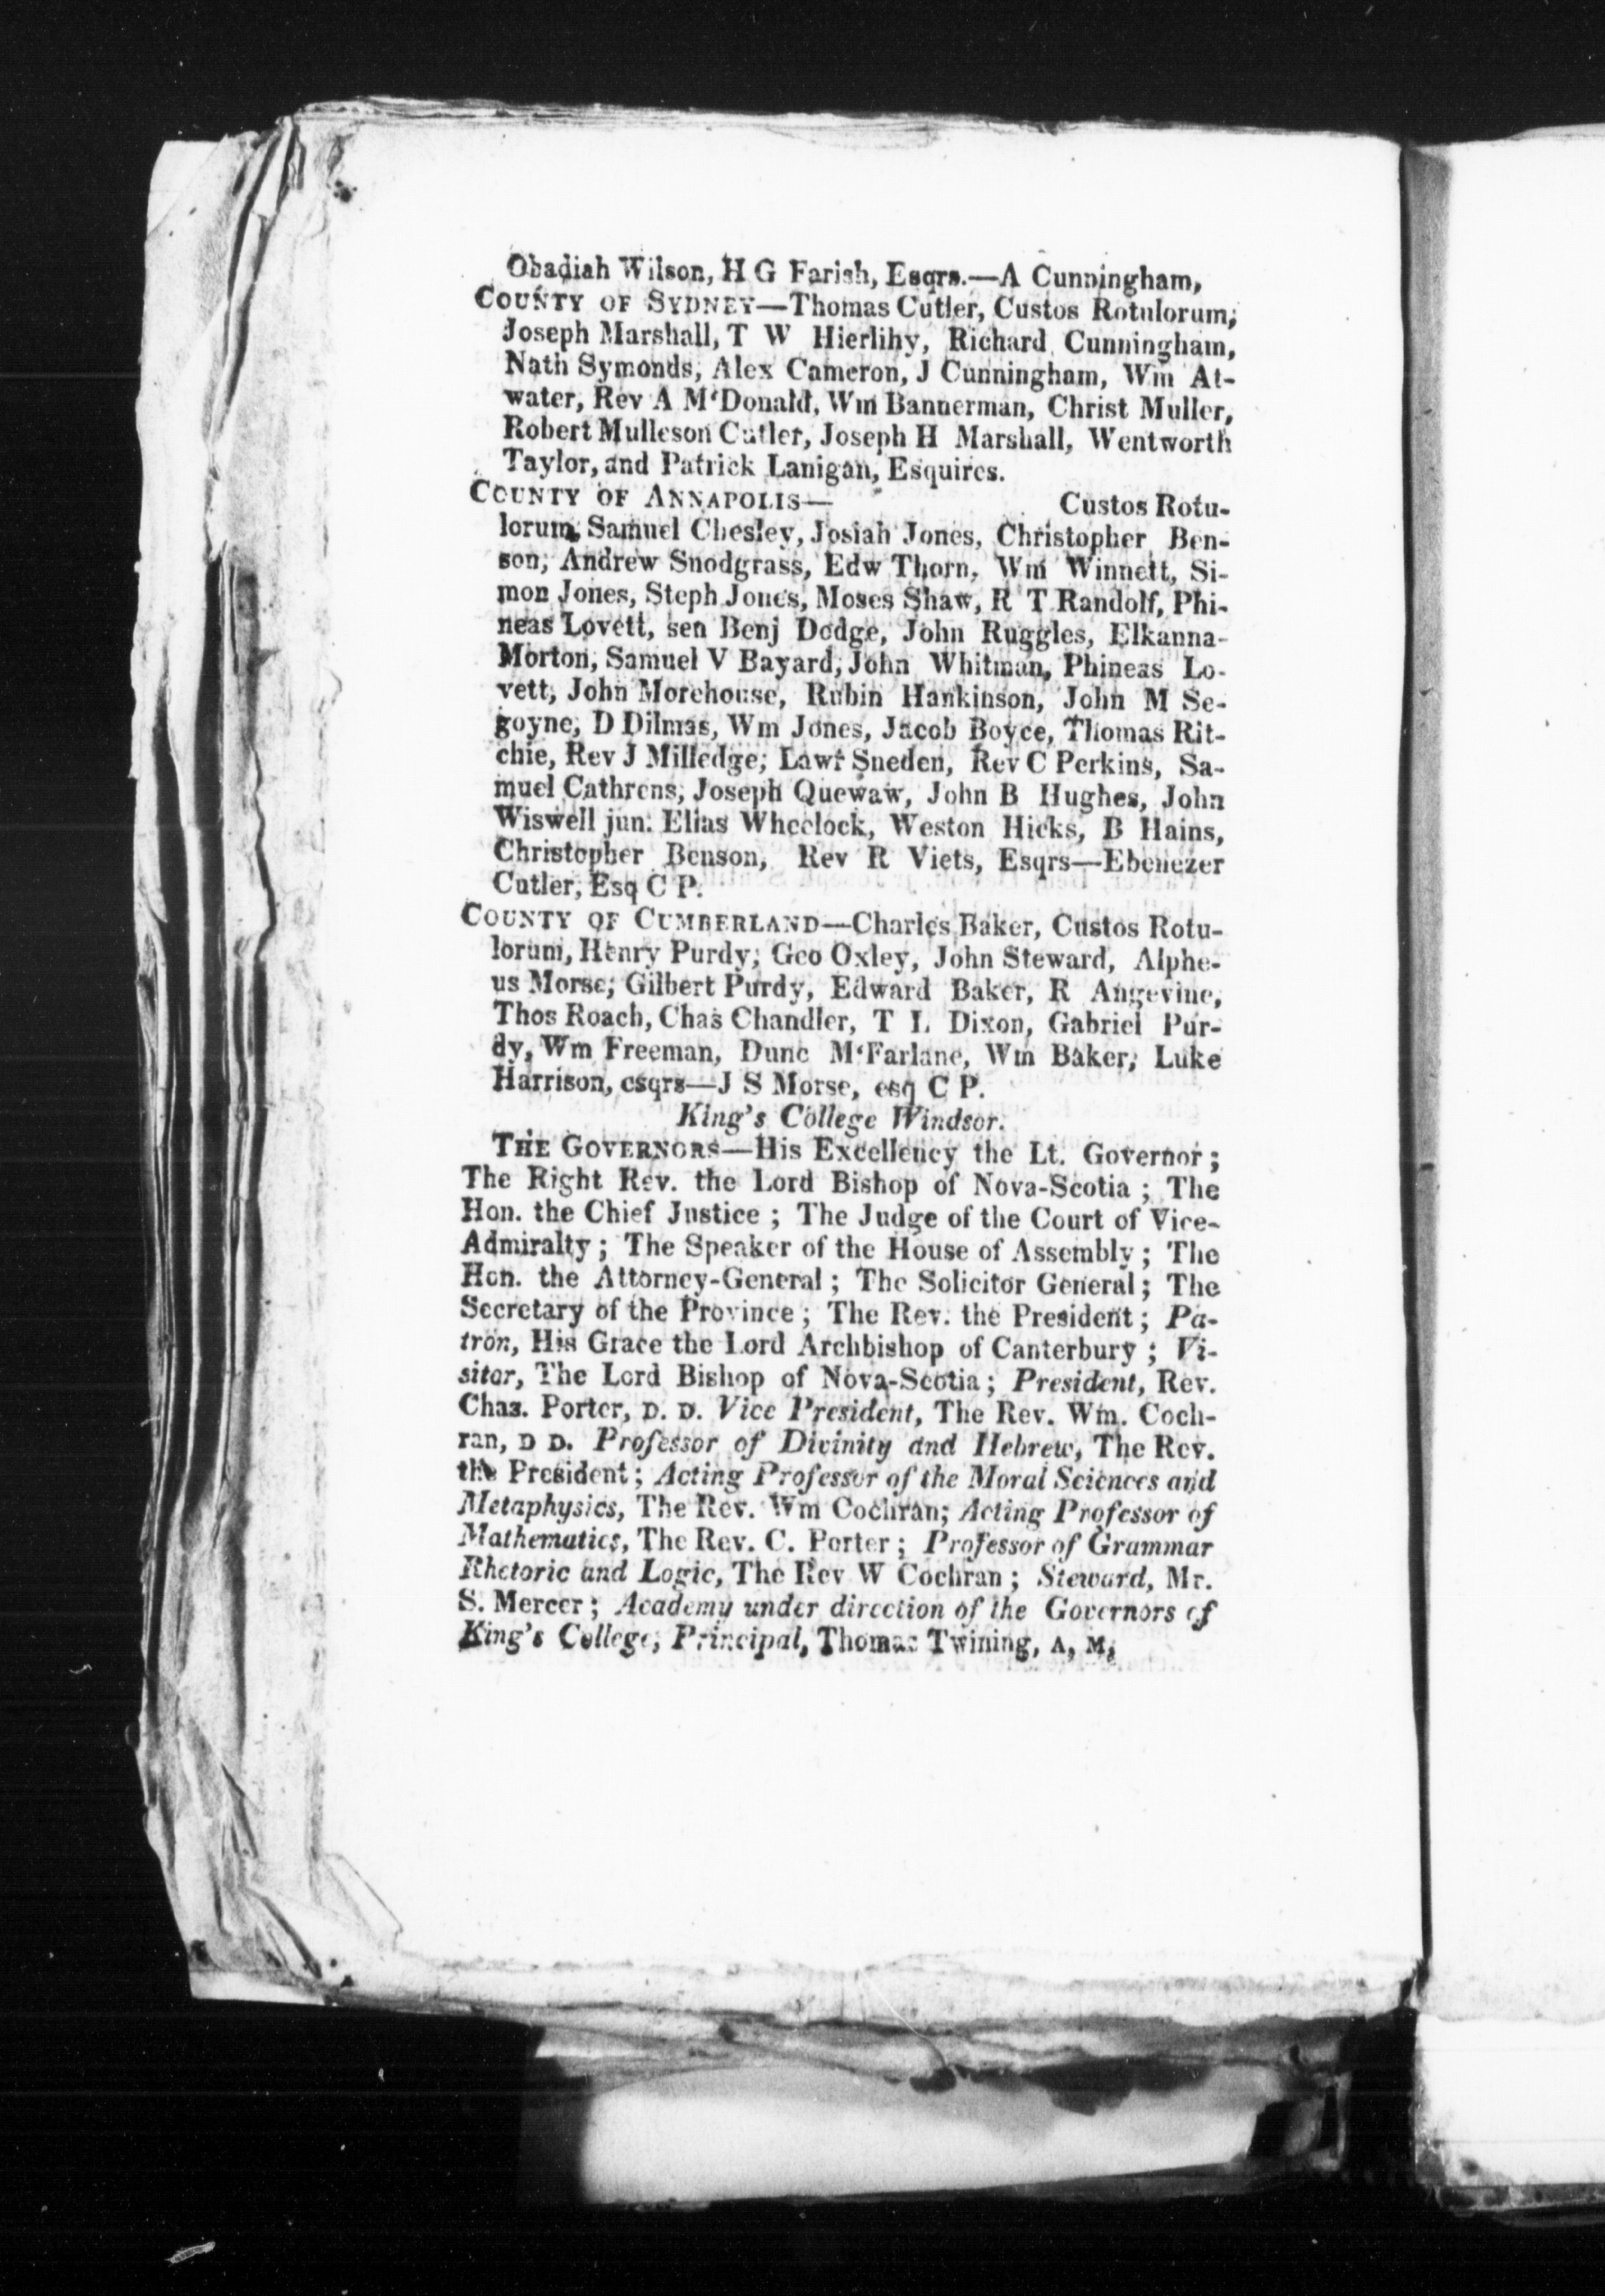 Obadiah Wilson, H G Farish, Esqrs.—A Cunningham,
COUNTY OF SYDNEY—Thomas Cutler, Custos Rotulorum,
Joseph Marshall, T W Hierlihy, Richard Cunningham,
Nath Symonds, Alex Cameron, J Cunningham, Wm At-
water, Rev A M'Donald, Wm Bannerman, Christ Muller,
Robert Mulleson Cutler, Joseph H Marshall, Wentworth
Taylor, and Patrick Lanigan, Esquires.
COUNTY OF ANNAPOLIS— Custos Rotu-
lorum, Samuel Chesley, Josiah Jones, Christopher Ben-
son, Andrew Snodgrass, Edw Thorn, Wm Winnett, Si-
mon Jones, Steph Jones, Moses Shaw, R T Randolf, Phi-
neas Lovett, sen Benj Dodge, John Ruggles, Elkanna-
Morton, Samuel V Bayard, John Whitman, Phineas Lo-
vett, John Morehouse, Rubin Hankinson, John M Se-
goyne, D Dilmas, Wm Jones, Jacob Boyce, Thomas Rit-
chie, Rev J Milledge, Lawr Sneden, Rev C Perkins, Sa-
muel Cathrens, Joseph Quewaw, John B Hughes, John
Wiswell jun. Elias Wheelock, Weston Hicks, B Hains,
Christopher Benson, Rev R Viets, Esqrs—Ebenezer
Cutler, Esq C P.
COUNTY OF CUMBERLAND—Charles Baker, Custos Rotu-
lorum, Henry Purdy, Geo Oxley, John Steward, Alphe-
us Morse, Gilbert Purdy, Edward Baker, R Angevine,
Thos Roach, Chas Chandler, T L Dixon, Gabriel Pur-
dy, Wm Freeman, Dunc M'Farlane, Wm Baker, Luke
Harrison, esqrs—J S Morse, esq C P.
King's College Windsor.
THE GOVERNORS—His Excellency the Lt. Governor;
The Right Rev. the Lord Bishop of Nova-Scotia; The
Hon. the Chief Justice; The Judge of the Court of Vice-
Admiralty; The Speaker of the House of Assembly; The
Hon. the Attorney-General; The Solicitor General; The
Secretary of the Province; The Rev. the President; Pa-
tron, His Grace the Lord Archbishop of Canterbury; Vi-
sitor, The Lord Bishop of Nova-Scotia; President, Rev.
Chas. Porter, D. D. Vice President, The Rev. Wm. Coch-
ran, D D. Professor of Divinity and Hebrew, The Rev.
the President; Acting Professor of the Moral Sciences and
Metaphysics, The Rev. Wm Cochran; Acting Professor of
Mathematics, The Rev. C. Porter; Professor of Grammar
Rhetoric and Logic, The Rev W Cochran; Steward, Mr.
S. Mercer; Academy under direction of the Governors of
King's College, Principal, Thomas Twining, A, M,